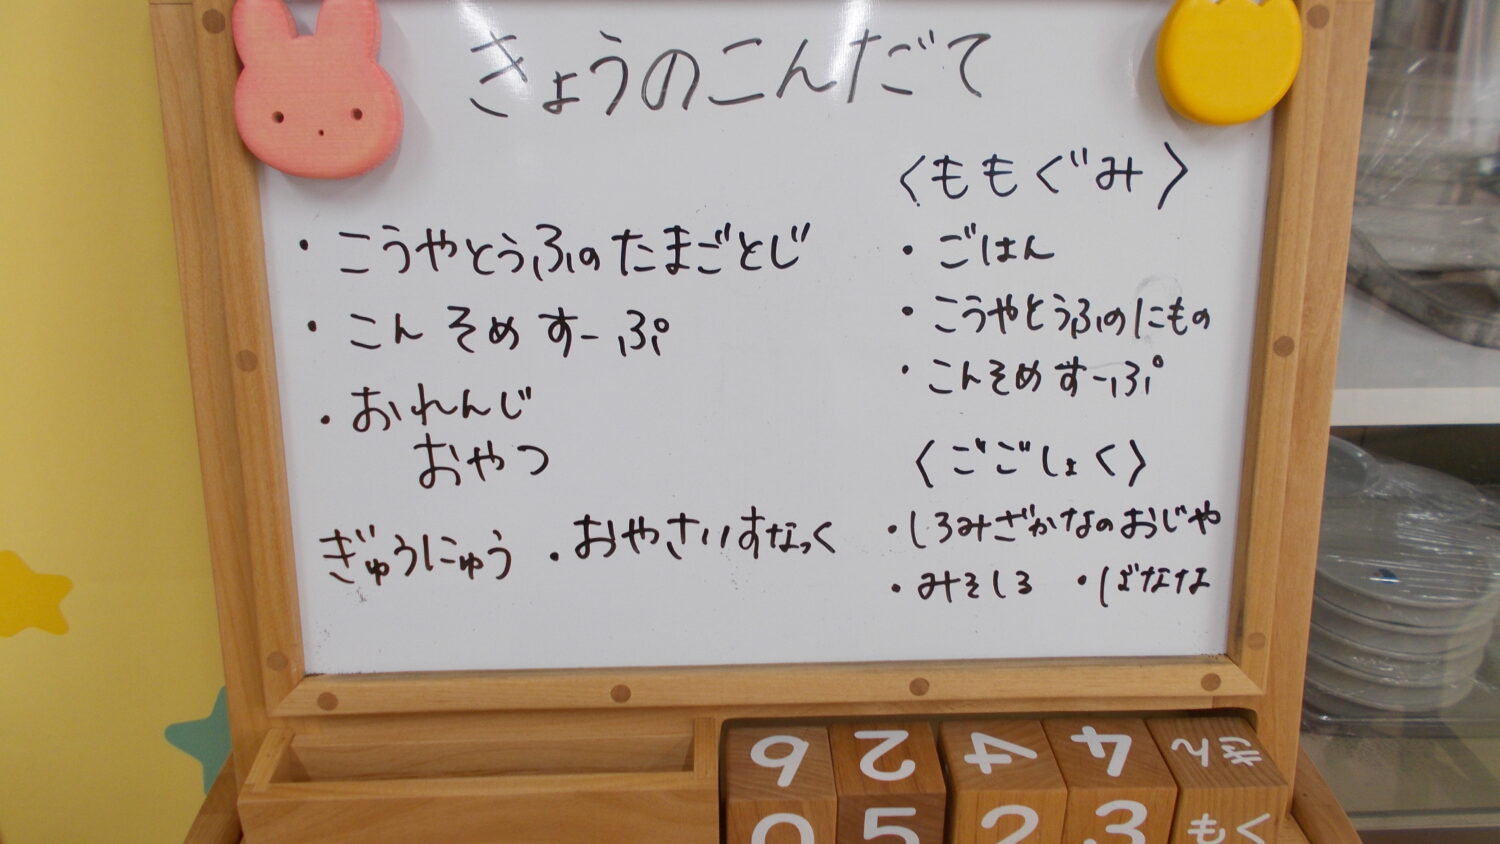 きょうのこんだて
・こうやとうふのたまごとじ
・こんそめすーぷ
・おれんじ
おやつ
ぎゅうにゅう ・おやさいすなっく
〈ももぐみ〉
・ごはん
・こうやとうふのにもの
・こんそめすーぷ
〈ごごしょく〉
・しろみざかなのおじや
・みそしる ・ばなな
9 2 4 4 きん
0 5 2 3 もく